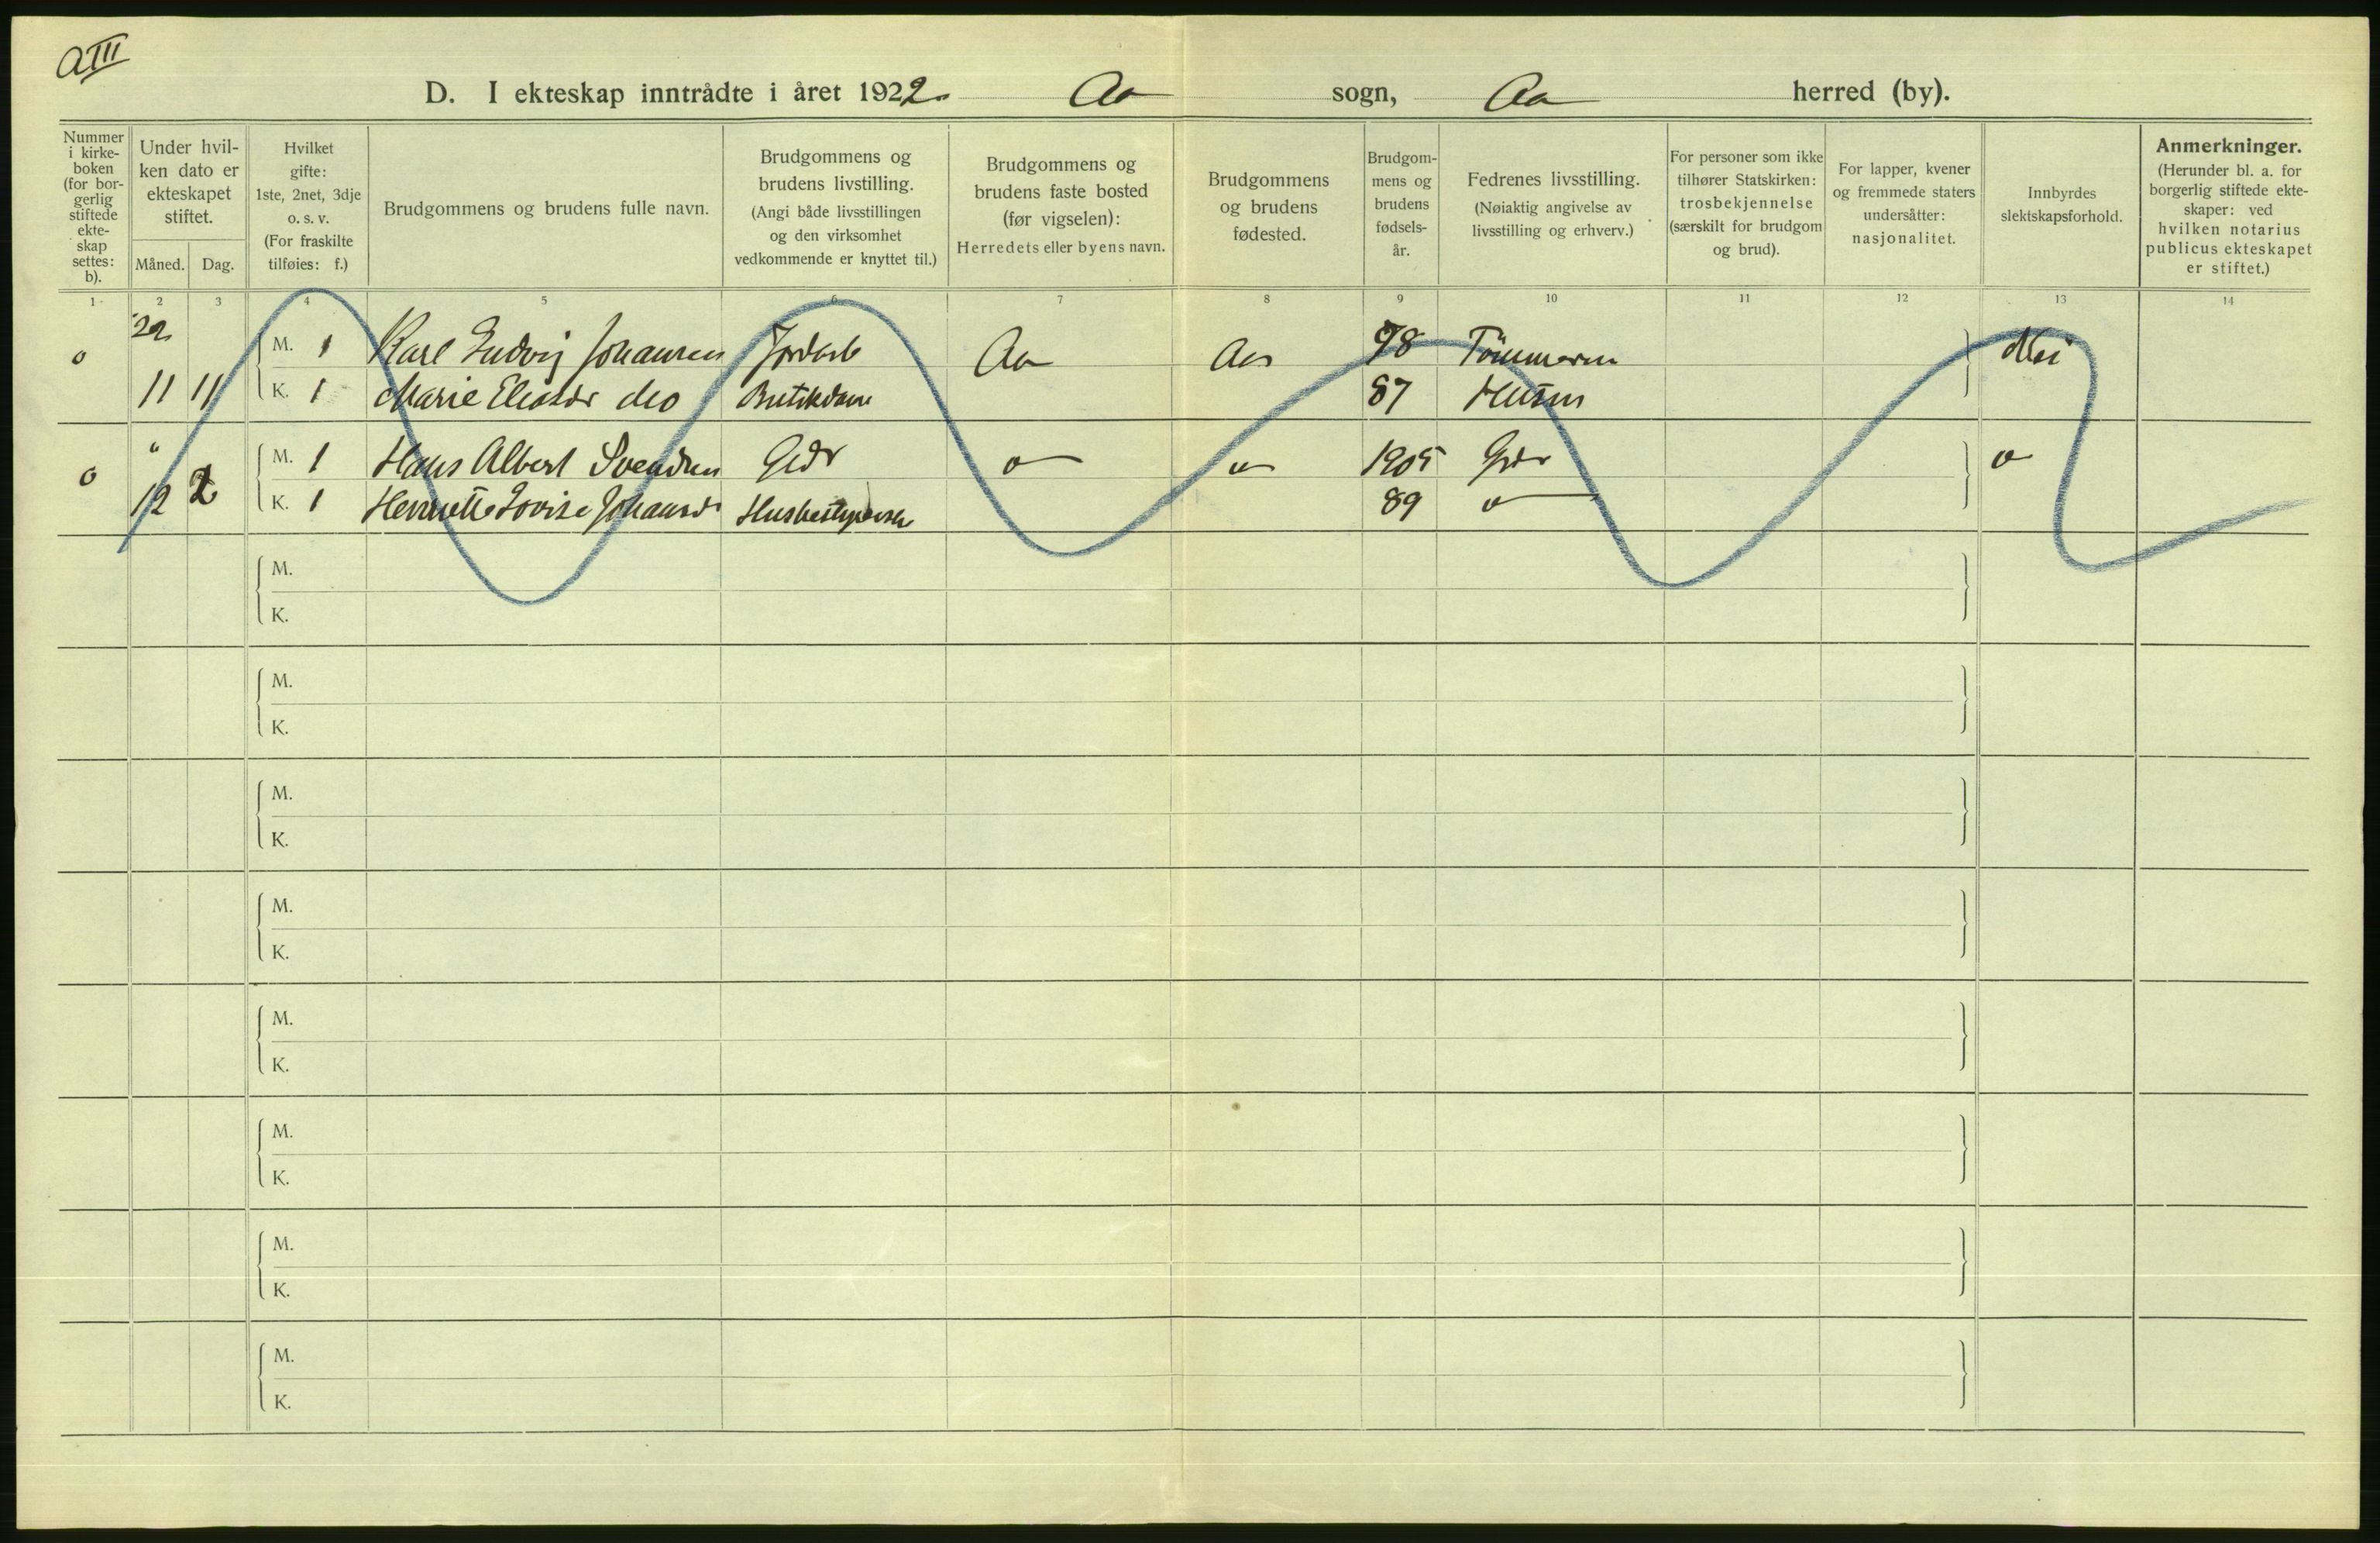 a III
D. I ekteskap inntrådte i året 1922 Aa sogn, Aa herred (by).
Nummer i kirkeboken (for borgerlig stiftede ekteskap settes: b).
Under hvilken dato er ekteskapet stiftet.
Måned. Dag.
Hvilket gifte: 1ste, 2net, 3dje o. s. v. (For fraskilte tilføies: f.)
Brudgommens og brudens fulle navn.
Brudgommens og brudens livstilling. (Angi både livsstillingen og den virksomhet vedkommende er knyttet til.)
Brudgommens og brudens faste bosted (før vigselen): Herredets eller byens navn.
Brudgommens og brudens fødested.
Brudgommens og brudens fødselsår.
Fedrenes livsstilling. (Nøiaktig angivelse av livsstilling og erhverv.)
For personer som ikke tilhører Statskirken: trosbekjennelse (særskilt for brudgom og brud).
For lapper, kvener og fremmede staters undersåtter: nasjonalitet.
Innbyrdes slektskapsforhold.
Anmerkninger. (Herunder bl. a. for borgerlig stiftede ekteskaper: ved hvilken notarius publicus ekteskapet er stiftet.)
1 2 3 4 5 6 7 8 9 10 11 12 13 14
o 22 M. 1 Karl Ludvig Johansen Jordarb Aa Aa 98 Tömmerm Nei
11 11 K. 1 Marie do Butikdame 87 Husm
o " M. 1 Hans Albert Svendsen Gdr o o 1905 Gdr o
12 2 K. 1 Henriette Lovise Johansd Husbestyrerske 89 o
M.
K.
M.
K.
M.
K.
M.
K.
M.
K.
M.
K.
M.
K.
M.
K.